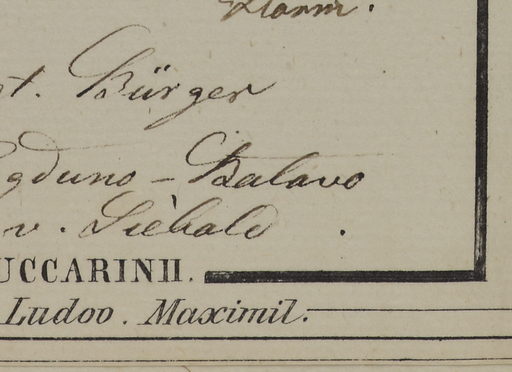 t. Bürger
gduno - Batavo
v. Siebald.
UCCARINII.
Ludoo. Maximil: